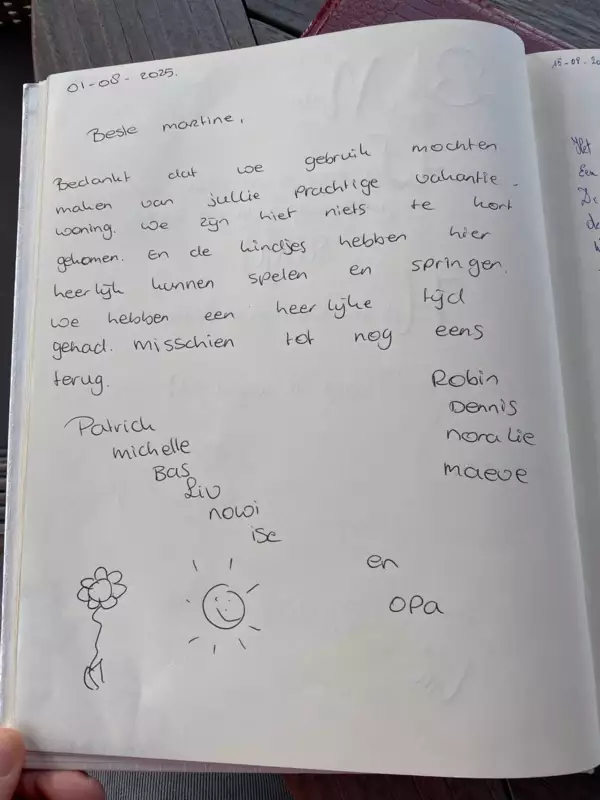 01-08-2025.
Beste martine,
Bedankt dat we gebruik mochten
maken van jullie prachtige vakantie.
woning. we zijn hier niets te kort
gekomen. En de kindjes hebben hier
heerlijk kunnen spelen en springen.
we hebben een heerlijke tijd
gehad. misschien tot nog eens
terug.
Patrick
michelle
Bas
Liv
nowi
ise
Robin
Dennis
noralie
maeve
en
opa
15-08-20